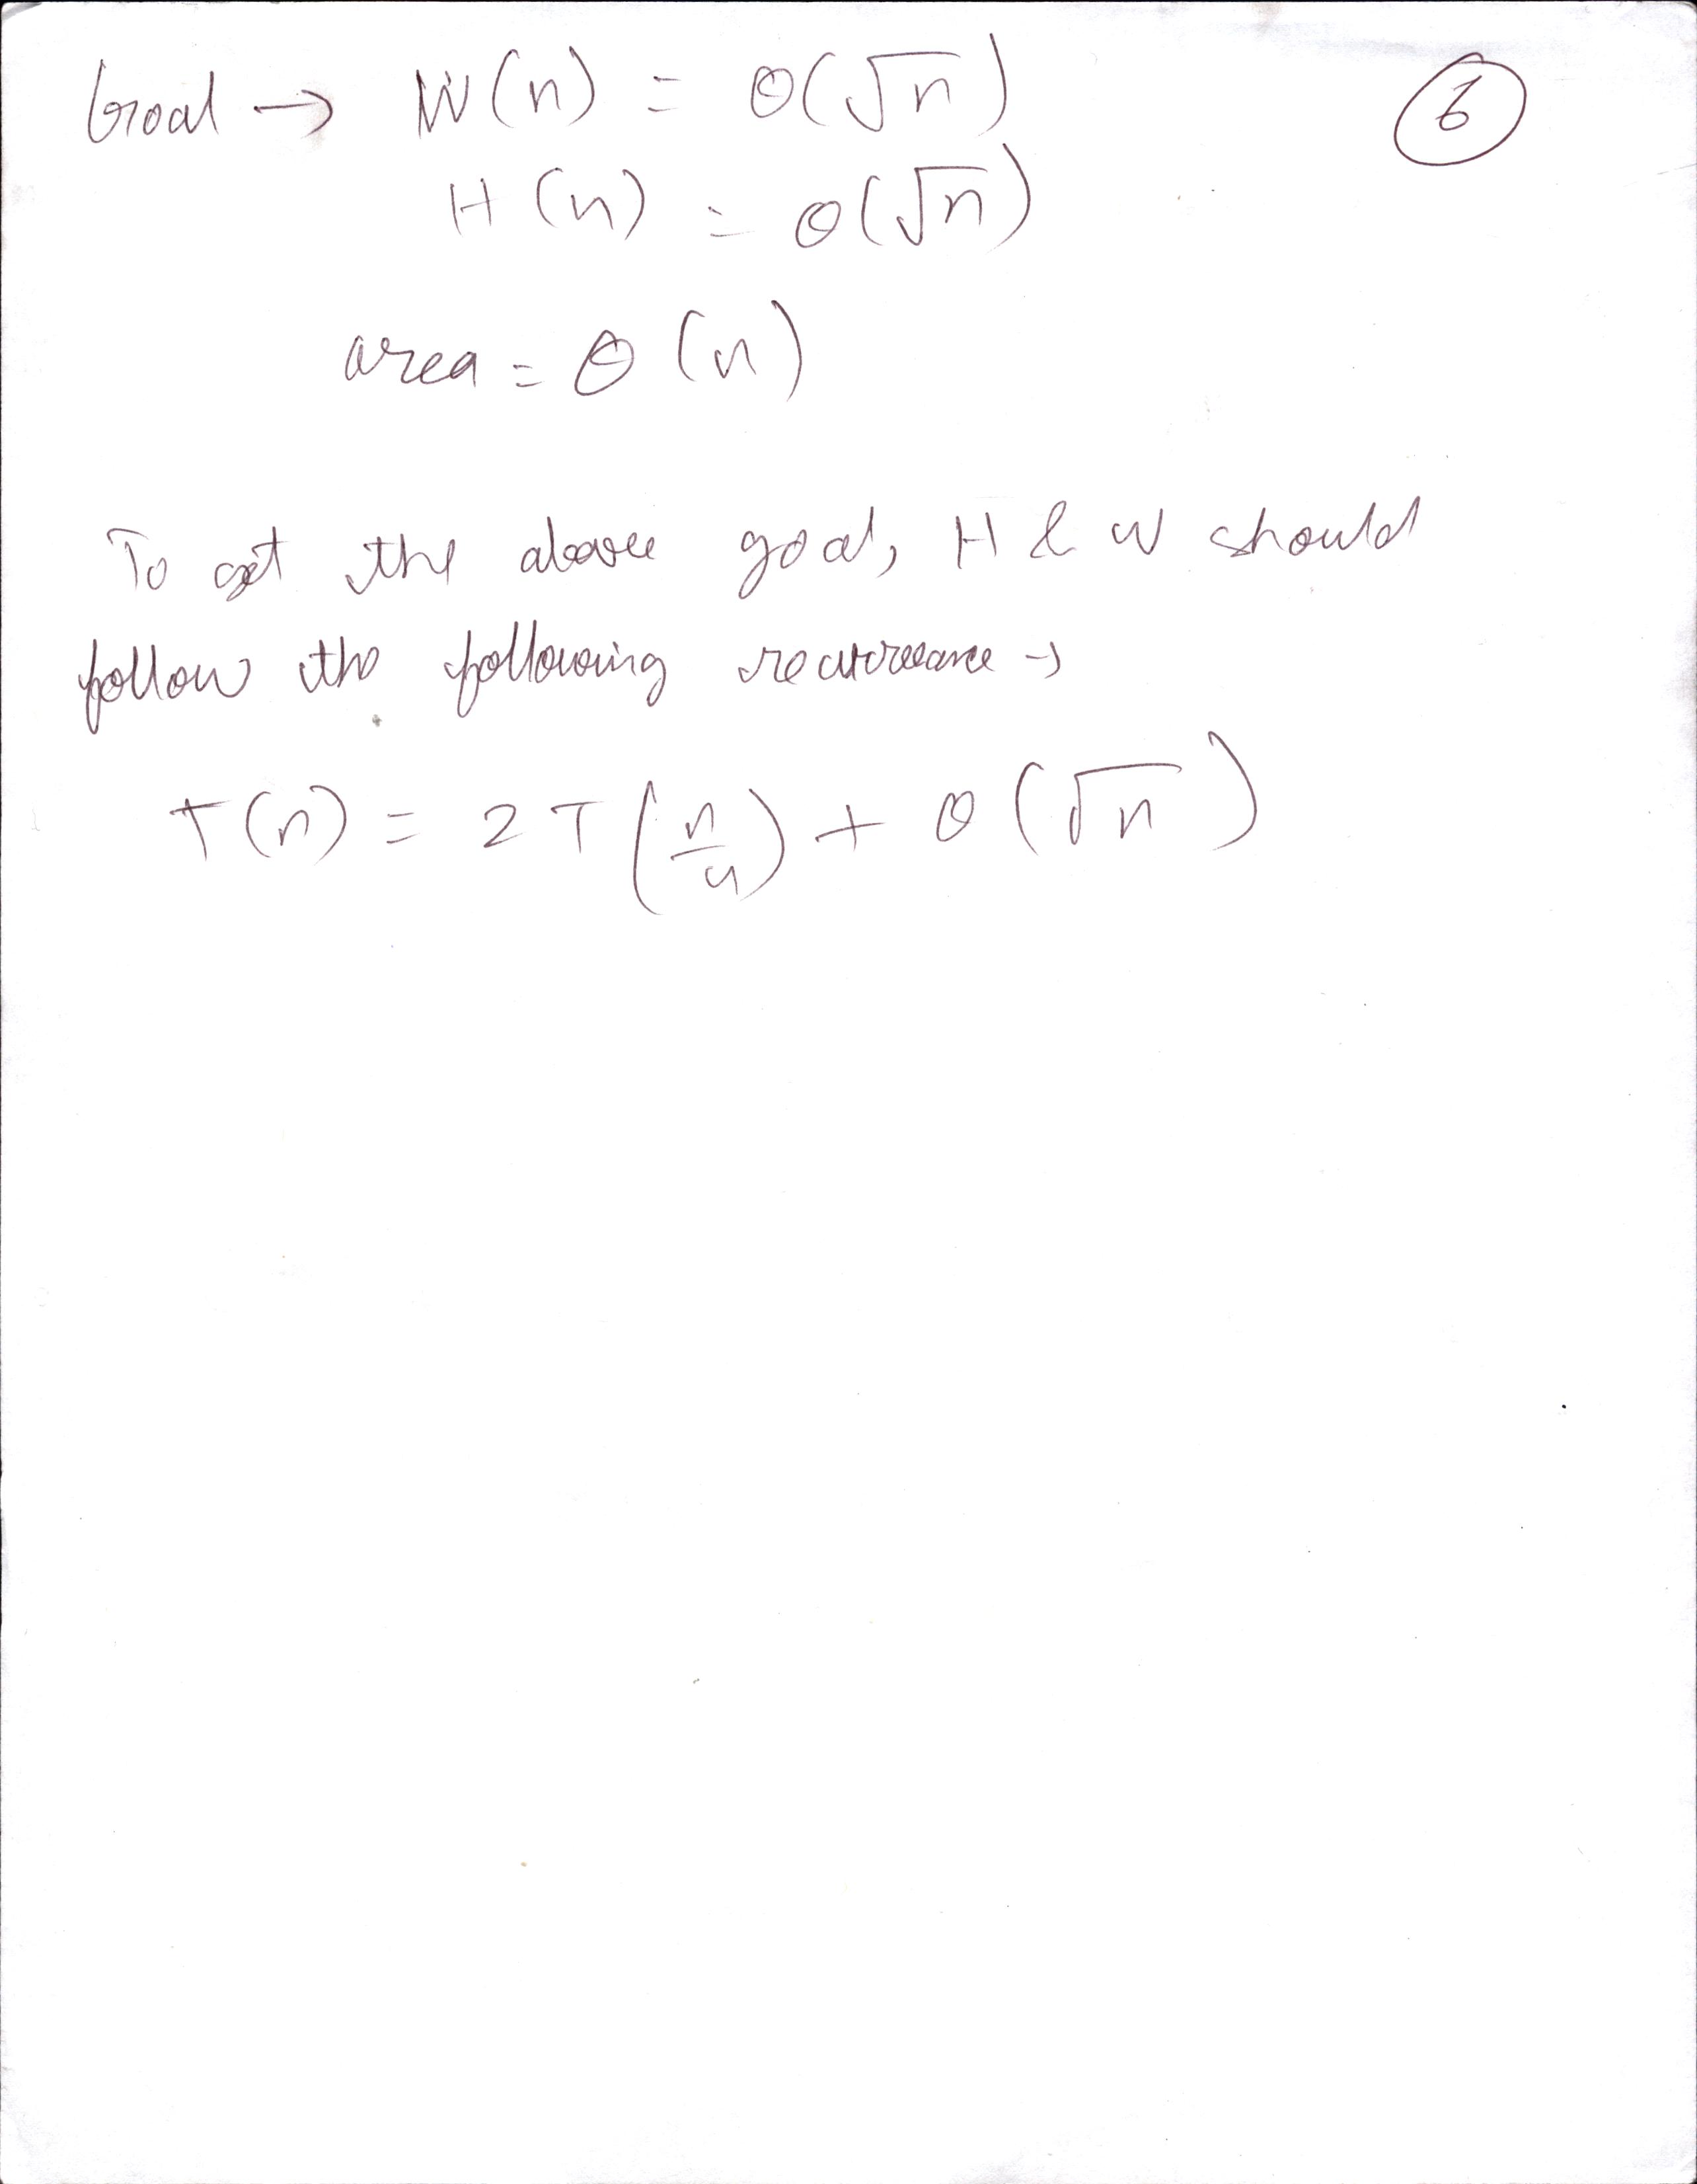 Goal → W(n) = Θ(√n)
6
H(n) = Θ(√n)
area = Θ(n)
To get the above goal, H & W should
follow the following recurrence →
T(n) = 2T(n/4) + Θ(√n)